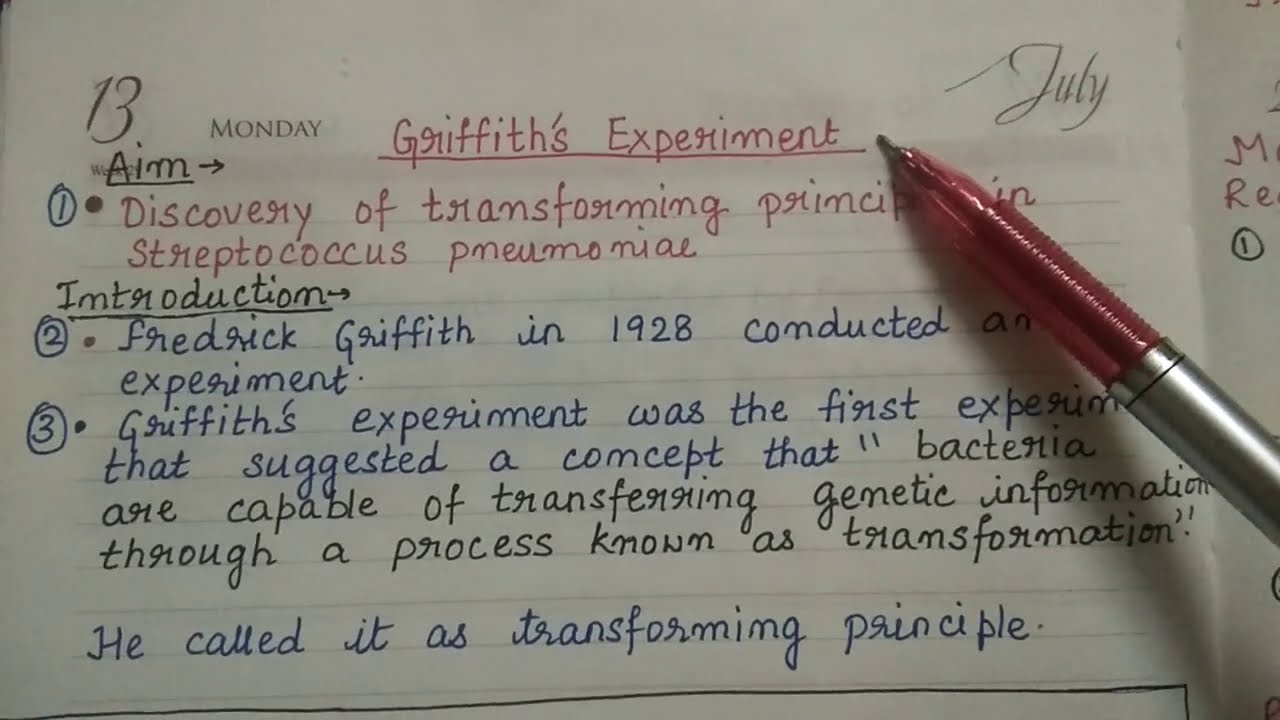 13 MONDAY July
Griffith's Experiment
Aim →
① • Discovery of transforming in
Streptococcus pneumoniae
Introduction →
② • Fredrick Griffith in 1928 conducted an
experiment.
③ • Griffith's experiment was the first
that suggested a concept that " bacteria
are capable of transferring genetic information
through a process known as transformation".
He called it as transforming principle.
①